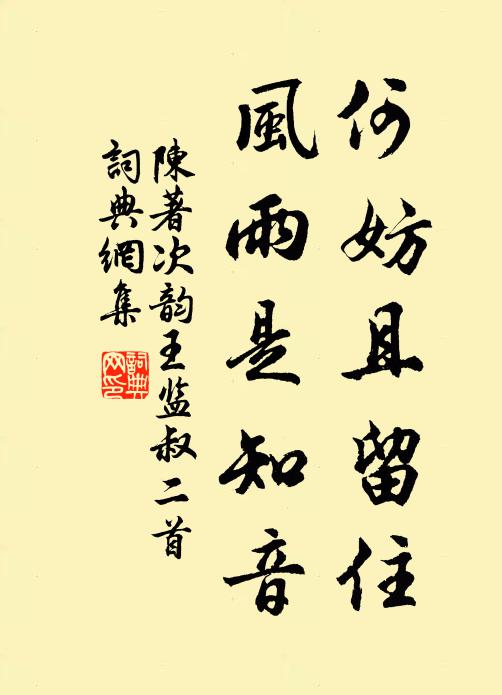 何妨且留住
風雨是知音
陳著次韵王监叔二首
詞典網集
詞典网印